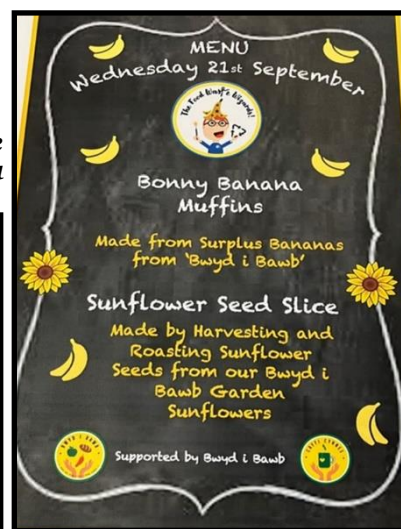 MENU
Wednesday 21st September
The Food Waste Wizards!
Bonny Banana
Muffins
Made from Surplus Bananas
from 'Bwyd i Bawb'
Sunflower Seed Slice
Made by Harvesting and
Roasting Sunflower
Seeds from our Bwyd i
Bawb Garden
Sunflowers
BWYD I BAWB
Supported by Bwyd i Bawb